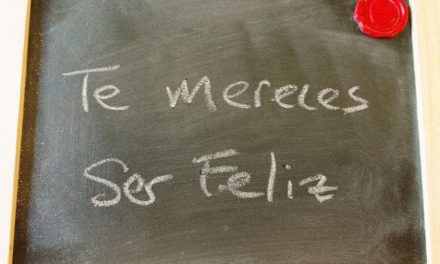 Te mereces
Ser Feliz